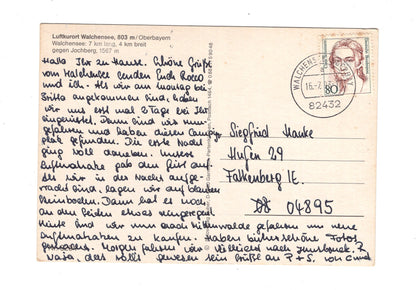 Luftkurort Walchensee, 803 m/Oberbayern
Walchensee: 7 km lang, 4 km breit
gegen Jochberg, 1567 m
Hallo Ihr zu Hause. Schöne Grüße
vom Walchensee senden Euch
und ich. Als wir am Montag bei
angekommen sind, haben
wir uns erst mal 2 Tage bei Ihr
einquartiert. Dann sind wir
gefahren und haben diesen Camping-
platz gefunden. Die erste Nacht
ging voll daneben. Unsere
Luftmatratze gab den Geist auf.
Als wir in der Nacht aufge-
wacht sind, lagen wir auf blanken
Steinboden. Dann hat es noch
an den Seiten etwas eingeregnet.
Heute sind wir nach Mittenwalde gefahren um neue
Luftmatratzen zu kaufen. Haben bisher schöne Fotos
geschossen. Morgen fahren wir vielleicht nach Innsbruck.
Naja, das solls gewesen sein Grüße an P + S. von
Siegfried Hanke
Hufen 29
Falkenberg /E.
04895
80
WALCHENSEE
82432